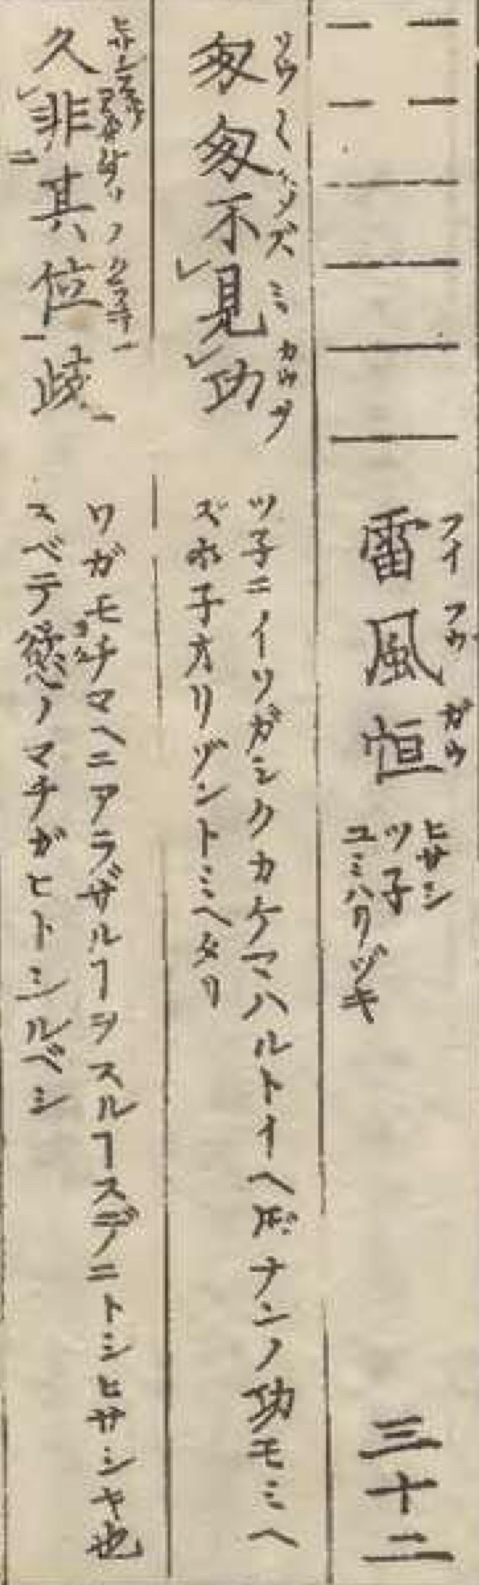 雷風恒 ヒサシ ツ子 ユミハリヅキ 三十二
匆匆不見功
ツ子ニイソガシクカケマハルトイヘ𪜈ナンノ功モミヘ
ズホ子ヲリゾントミヘタリ
久非其位歧
ワガモチマヘニアラザルヿヲスルヿスデニトシヒサシキ也
スベテ慾ノマチガヒトシルベシ